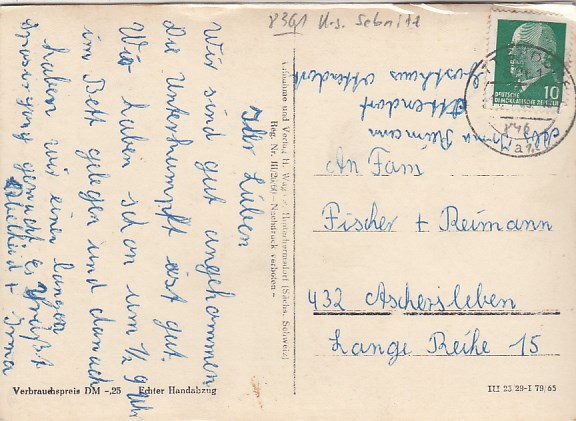 8301 Krs. Sebnitz
Ihr Lieben
Wir sind gut angekommen
Die Unterkunft ist gut.
Wir haben schon um ½ 9 Uhr
im Bett gelegen und danach
haben wir einen langen
gemacht. Es grüßt
+ Irma
Irma Reimann
Ottendorf
Gasthaus Ottendorf
An Fam
Fischer + Reimann
432 Aschersleben
Lange Reihe 15
DEUTSCHE
DEMOKRATISCHE REPUBLIK
10
Aufnahme und Verlag H. Wagner, Hinterhermsdorf (Sächs. Schweiz)
– Nachdruck verboten –
Verbrauchspreis DM -,25 Echter Handabzug
III 23/29-I 79/65